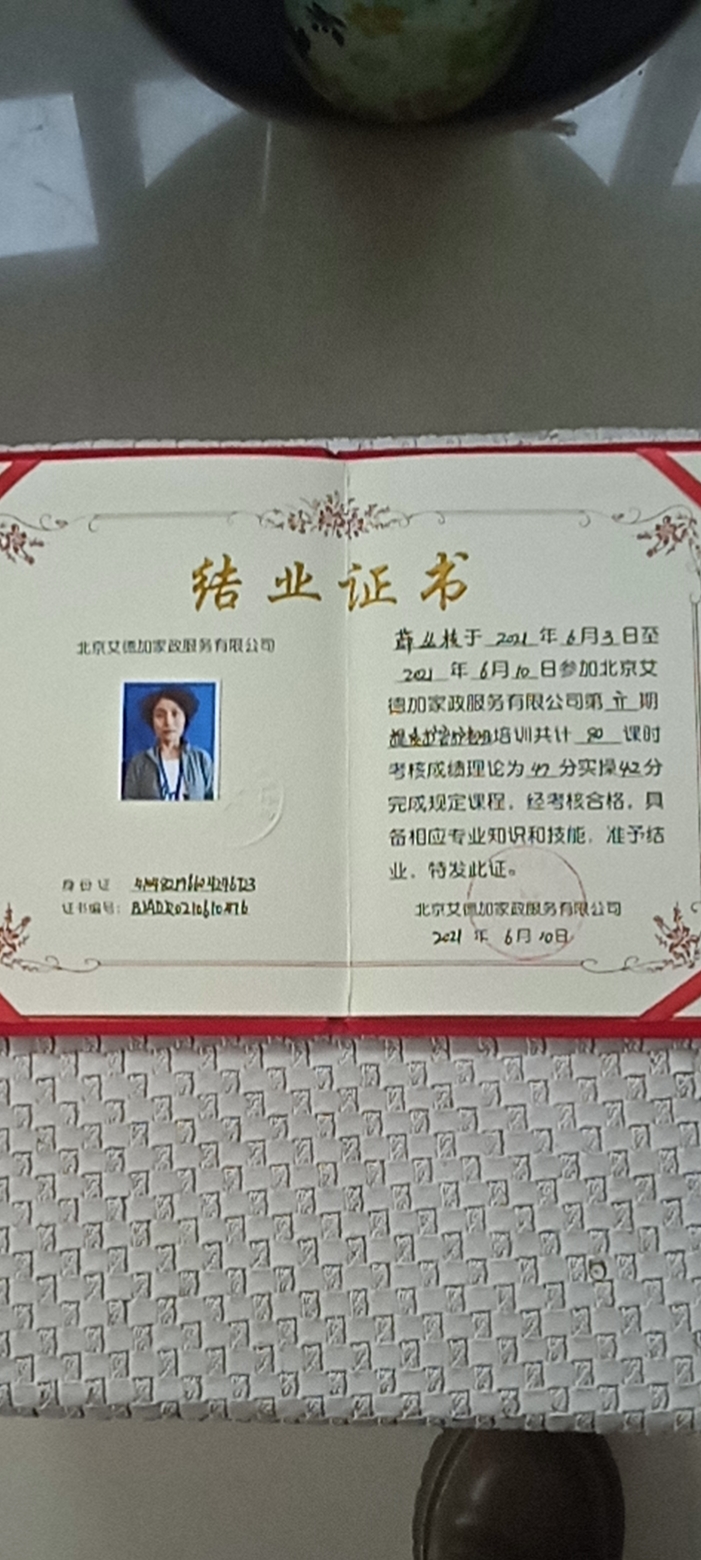 结业证书
北京艾德加家政服务有限公司
身份证
证书编号：
于 2021 年 6 月 3 日至
2021 年 6 月 10 日参加北京艾
德加家政服务有限公司第 期
培训共计 80 课时
考核成绩理论为 47 分实操 42 分
完成规定课程，经考核合格，具
备相应专业知识和技能，准予结
业，特发此证。
北京艾德加家政服务有限公司
2021 年 6 月 10 日